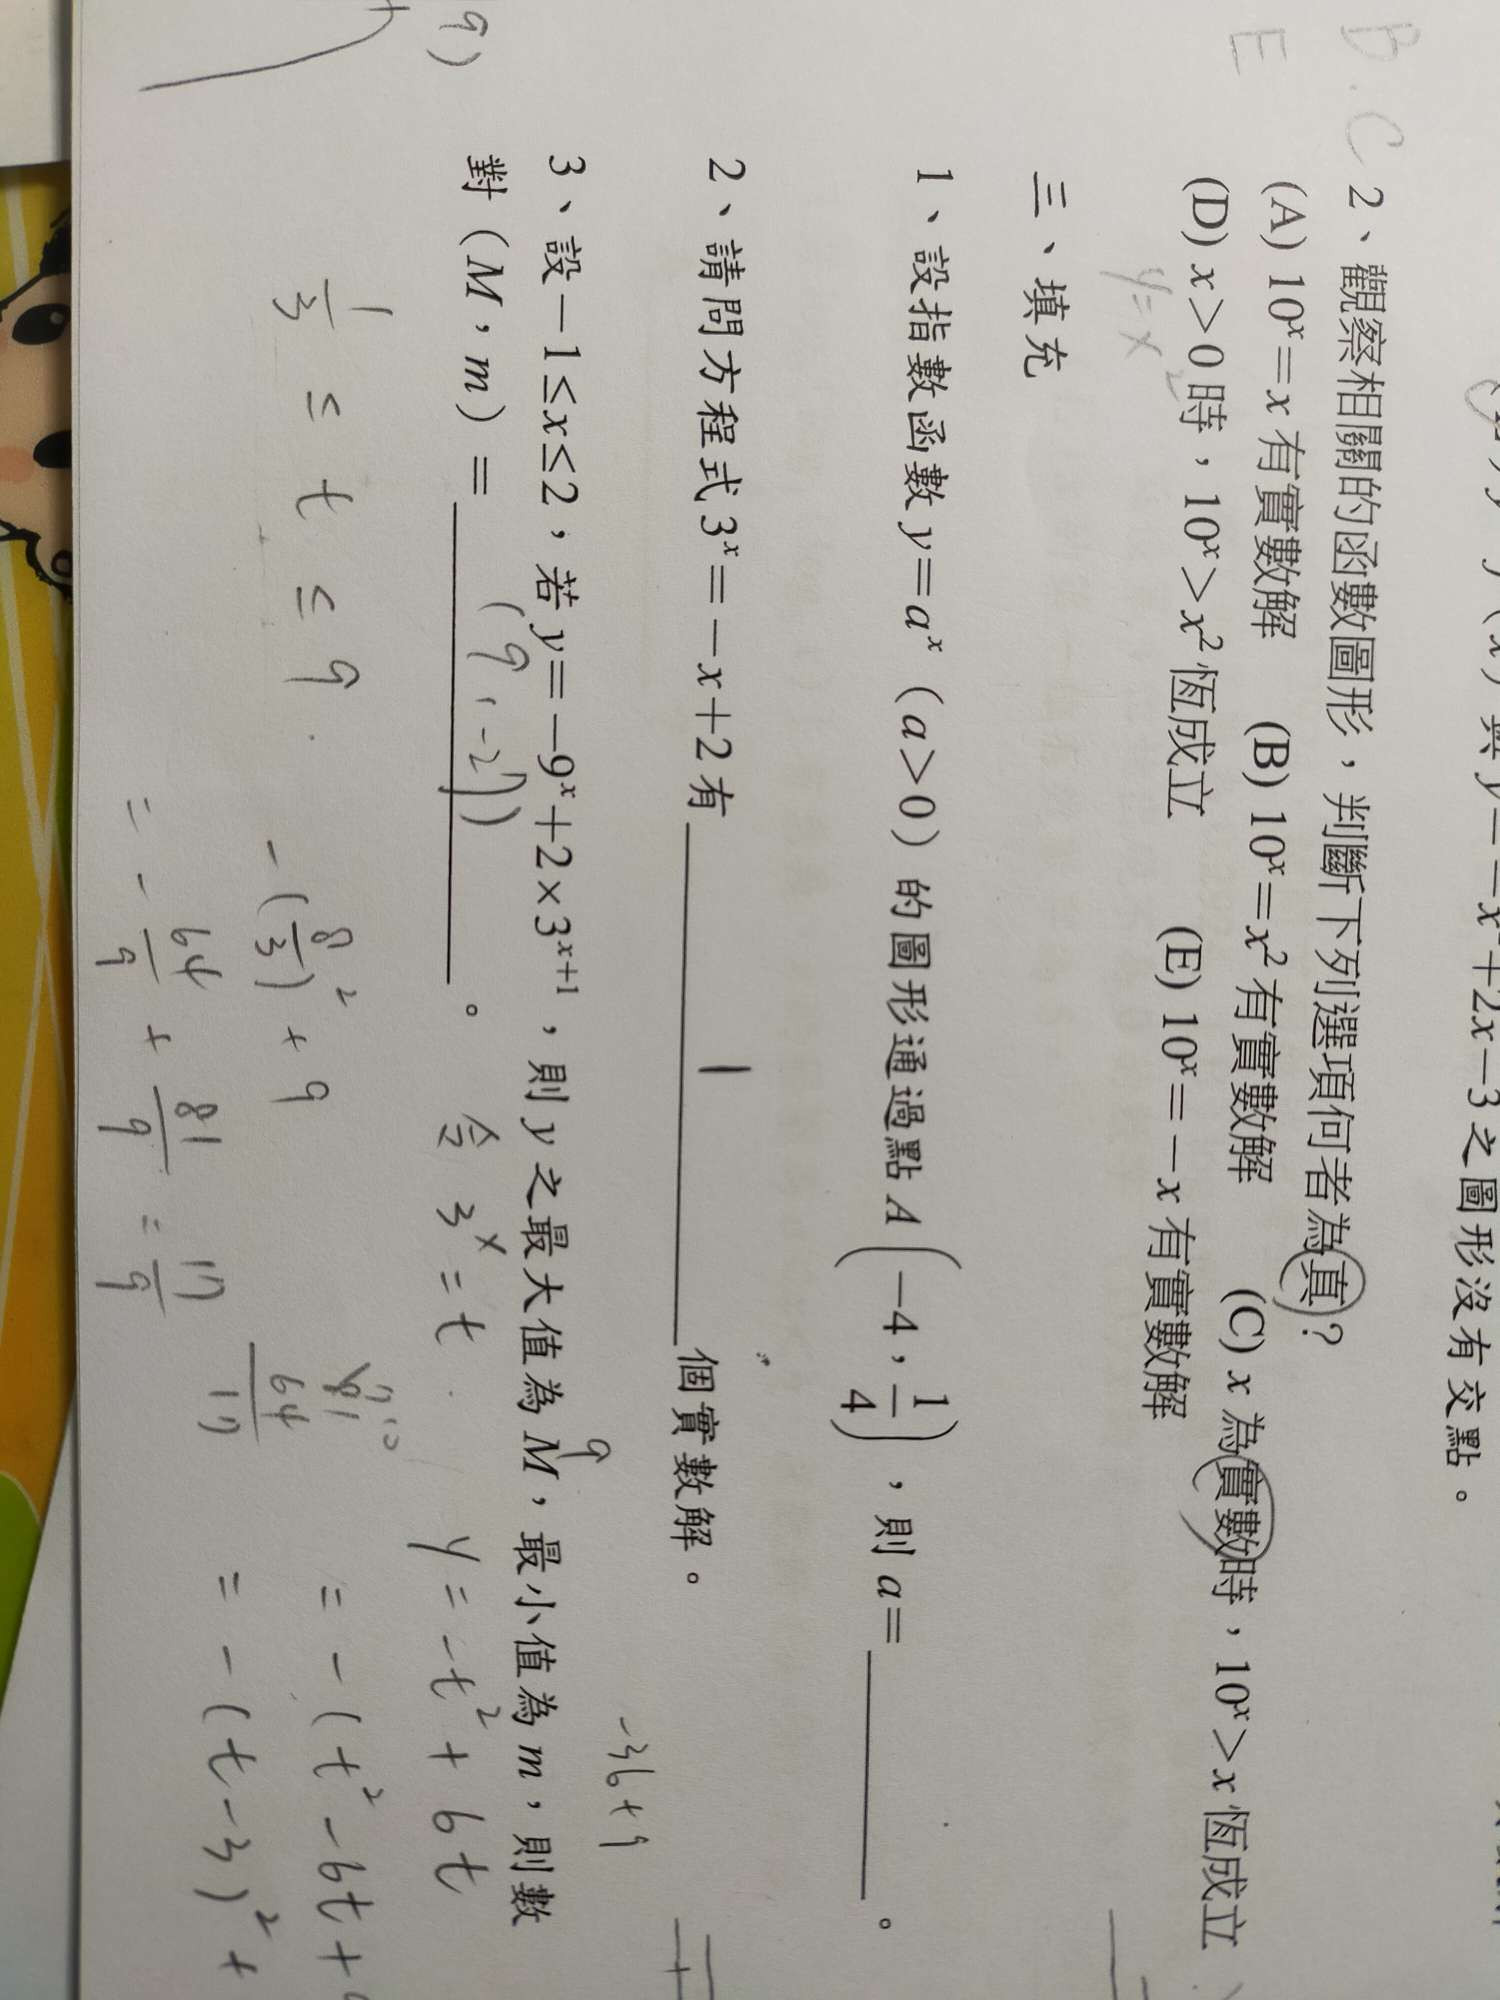 y=-x²+2x-3之圖形沒有交點。
B.C
E
2、觀察相關的函數圖形,判斷下列選項何者為真?
(A) 10ˣ=x有實數解 (B) 10ˣ=x²有實數解 (C) x為實數時,10ˣ>x恆成立
(D) x>0時,10ˣ>x²恆成立 (E) 10ˣ=-x有實數解
y=x²
三、填充
1、設指數函數y=aˣ(a>0)的圖形通過點A(-4,1/4),則a=______。
2、請問方程式3ˣ=-x+2有______1______個實數解。
-36+9
9
3、設-1≤x≤2,若y=-9ˣ+2×3ˣ⁺¹,則y之最大值為M,最小值為m,則數
對(M,m)=______。
(9,-27)
令 3ˣ=t
y=-t²+6t
1/3 ≤ t ≤ 9
=-(t²-6t+
=-(t-3)²+
-(8/3)²+9
=-64/9+81/9=17/9
81
64
17
9)